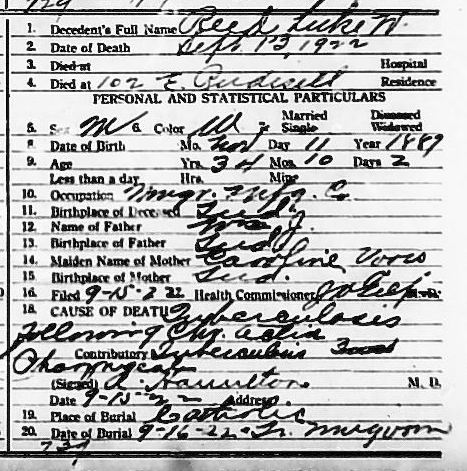 1. Decedent's Full Name Reed, Luke W.
2. Date of Death Sept. 13, 1922
3. Died at Hospital
4. Died at 102 E. Rudisill Residence
PERSONAL AND STATISTICAL PARTICULARS
5. Sex M 6. Color W 7. Married Single Diseased Widowed
8. Date of Birth Mo. Nov Day 11 Year 1887
9. Age Yrs. 34 Mos. 10 Days 2
Less than a day Hrs. Mins
10. Occupation Mngr. Mfg. C.
11. Birthplace of Deceased Ind.
12. Name of Father J.
13. Birthplace of Father Ind.
14. Maiden Name of Mother Caroline Voors
15. Birthplace of Mother Ind.
16. Filed 9-15-22 Health Commissioner M.D.
18. CAUSE OF DEATH Tuberculosis
following Chr. active
Contributory Tuberculosis 3
Pharyngeal
(Signed) A. Hamilton M. D.
Date 9-15-22 Address.
19. Place of Burial Catholic
20. Date of Burial 9-16-22
739